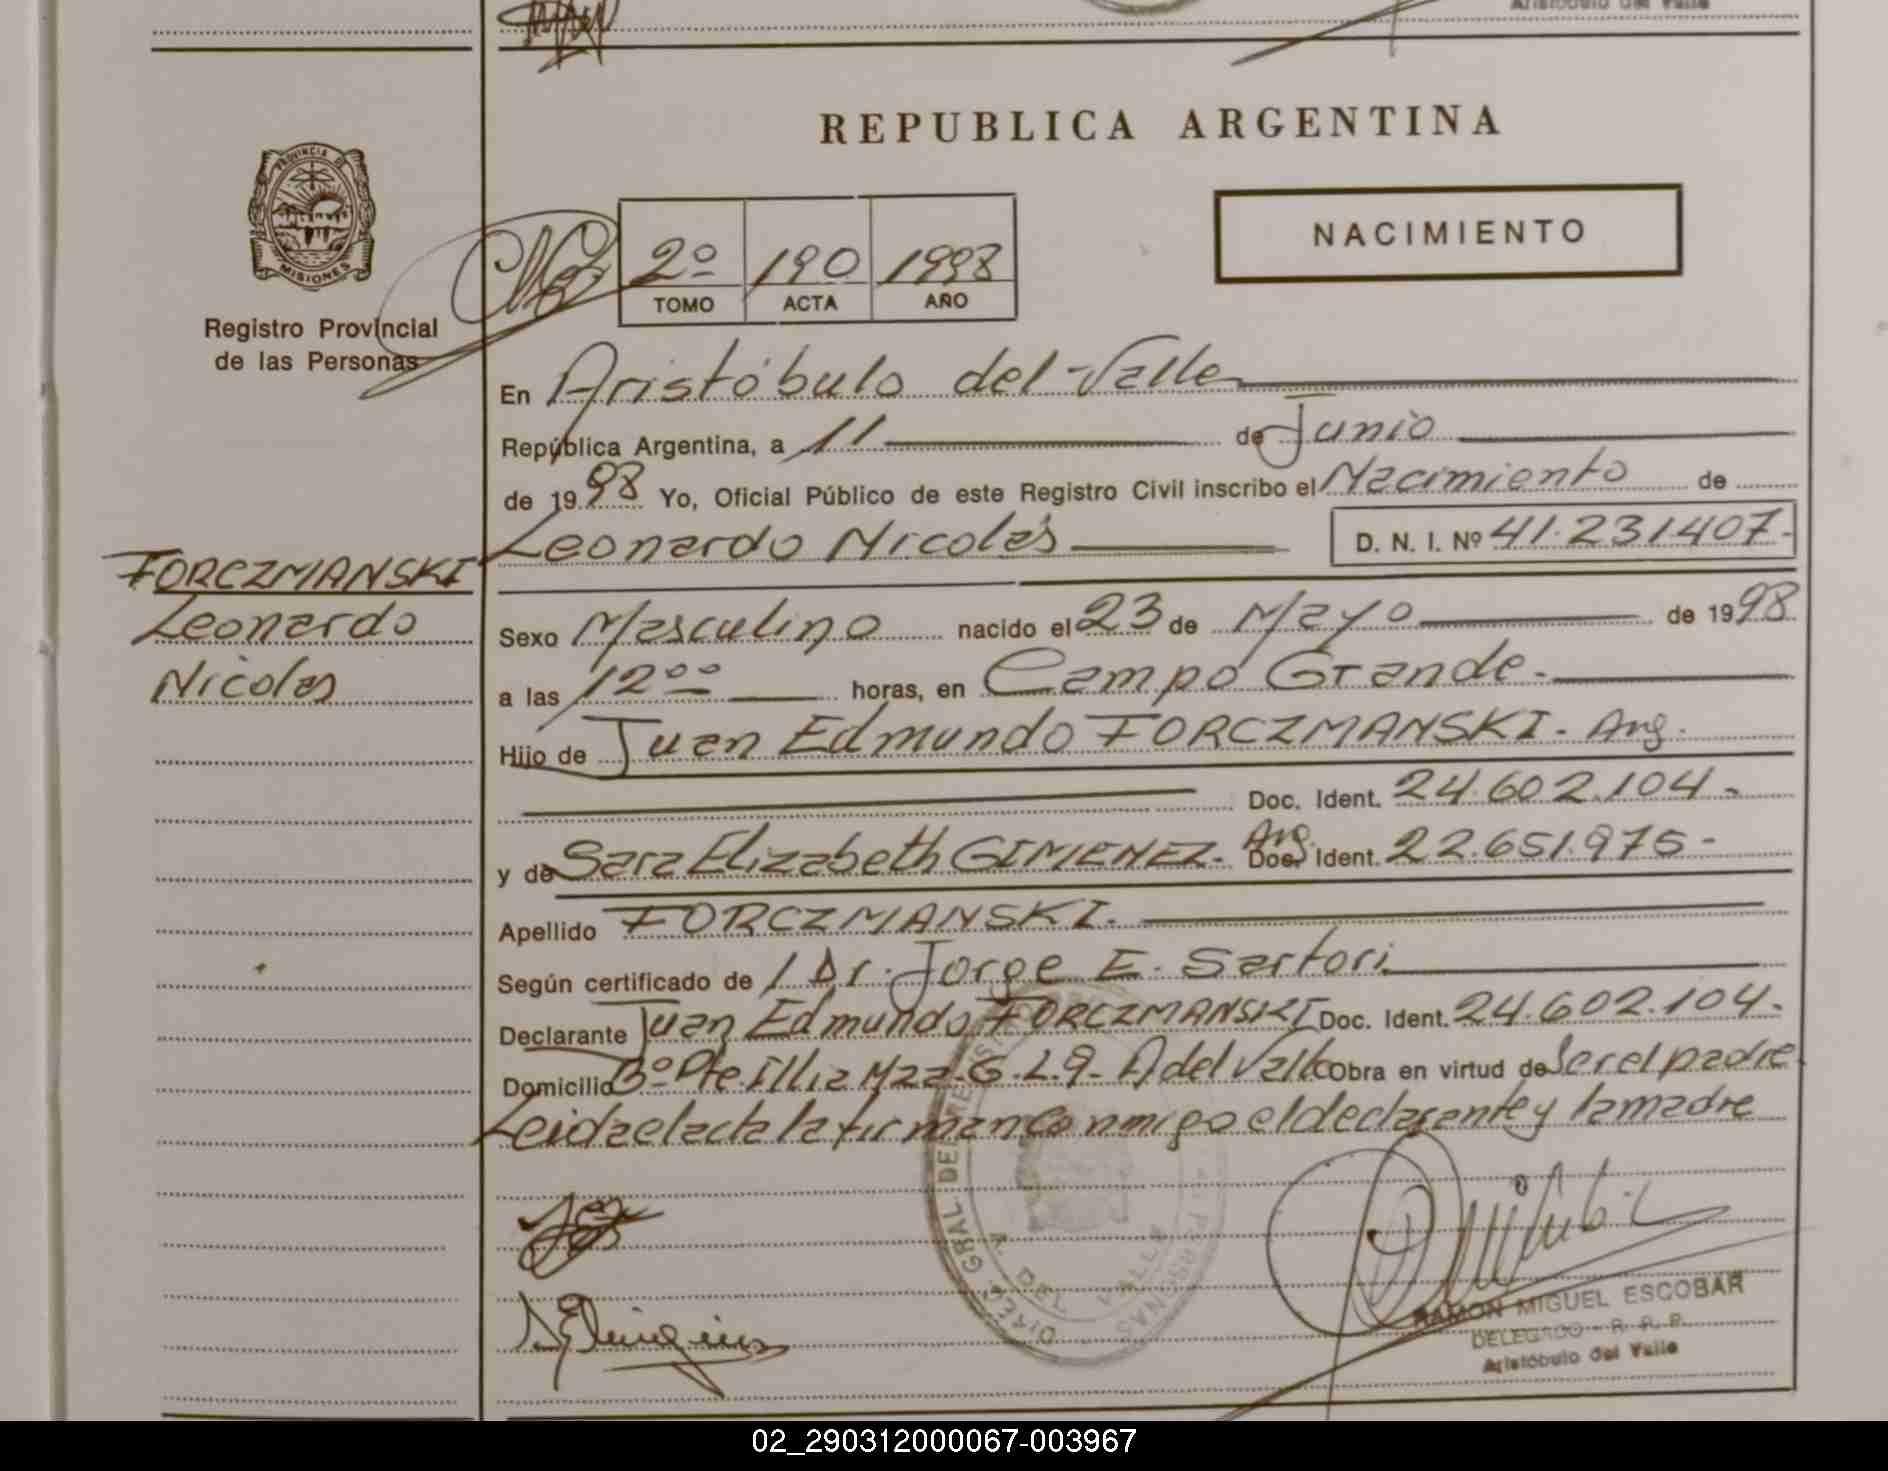 Aristóbulo del Valle
REPUBLICA ARGENTINA
PROVINCIA DE
MISIONES
Registro Provincial
de las Personas
2º 190 1998
TOMO ACTA AÑO
NACIMIENTO
En Aristóbulo del Valle
República Argentina, a 11 de Junio
de 1998 Yo, Oficial Público de este Registro Civil inscribo el Nacimiento de
Leonardo Nicolás D. N. I. Nº 41.231.407-
FORCZMANSKI
Leonardo
Nicolás
Sexo Masculino nacido el 23 de Mayo de 1998
a las 12ºº horas, en Campo Grande.
Hijo de Juan Edmundo FORCZMANSKI. Arg.
Doc. Ident. 24.602.104-
y de Sara Elizabeth GIMENEZ. Arg. Doc. Ident. 22.651.975-
Apellido FORCZMANSKI.
Según certificado de Dr. Jorge E. Sartori
Declarante Juan Edmundo FORCZMANSKI Doc. Ident. 24.602.104.
Domicilio Bº Pte. Illia Mza. G. L.9. A del Valle Obra en virtud de Ser el padre
Leida el acta la firman conmigo el declarante y la madre
DIREC. GRAL DEL
A. DEL VALLE
RAMON MIGUEL ESCOBAR
DELEGADO - R. P. P.
Aristóbulo del Valle
02_290312000067-003967